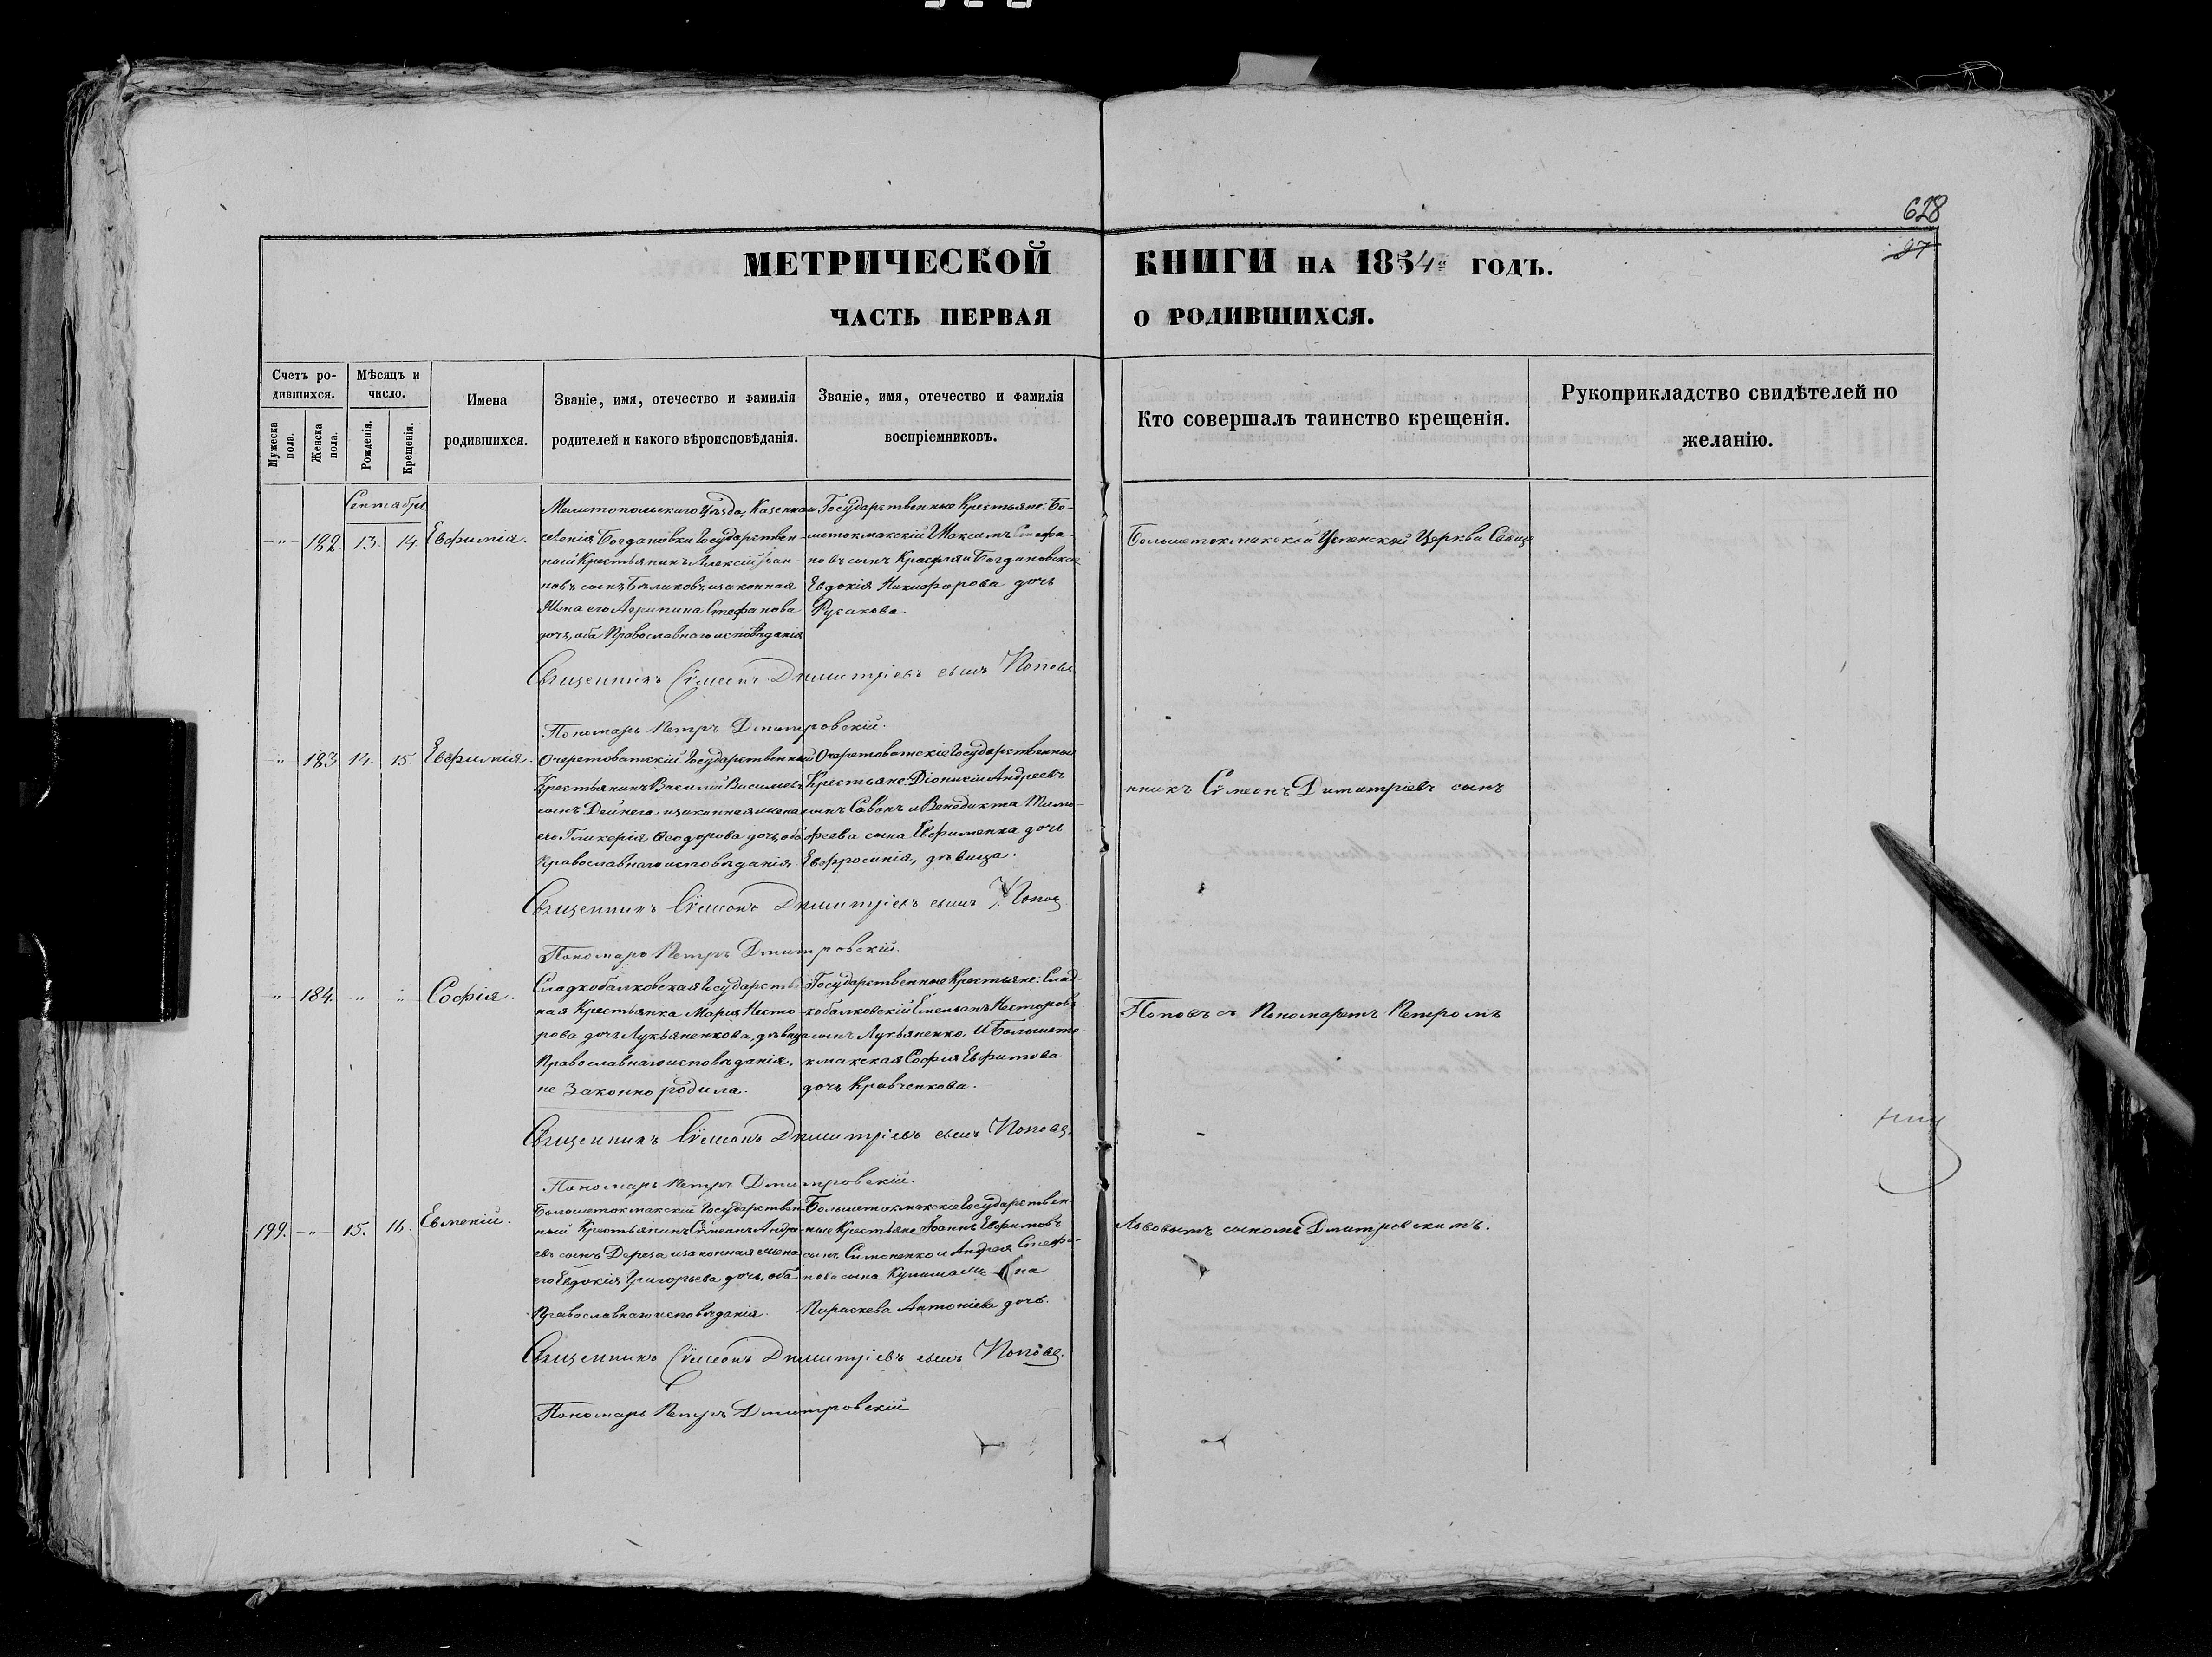 628
27
МЕТРИЧЕСКОЙ КНИГИ НА 1854й ГОДЪ.
ЧАСТЬ ПЕРВАЯ О РОДИВШИХСЯ.
Счетъ ро-
дившихся.
Мужеска пола.
Женска пола.
Мѣсяцъ и
число.
Рожденія.
Крещенія.
Имена
родившихся.
Званіе, имя, отечество и фамилія
родителей и какого вѣроисповѣданія.
Званіе, имя, отечество и фамилія
воспріемниковъ.
Кто совершалъ таинство крещенія.
Рукоприкладство свидѣтелей по
желанію.
Сентябрь
-"- 182. 13. 14. Евфимія.
Мелитопольскаго Уѣзда, Казеннаго
селенія Богдановки Государствен-
ный Крестьянинъ Алексій Іоан-
новъ сынъ Бѣликовъ и законная
Жена его Агрипина Стефанова
дочь, оба Православнаго исповѣданія
Государственные Крестьяне: Бо-
шетокмакскій Максимъ Стефа-
новъ сынъ и Богдановская
Евдокія Никифорова дочь
Русакова.
Священникъ Сѵмеонъ Димитріевъ сынъ Поповъ
Пономарь Петръ Дмитровскій.
-"- 183 14. 15. Евфимія.
Очеретоватскій Государственный
Крестьянинъ Василій Васильевъ
сынъ Дейнега и законная жена
его Гликерія Ѳеодорова дочь, оба
Православнаго исповѣданія.
Очеретоватскіе Государственные
Крестьяне: Діонисій Андреевъ
сынъ Саванъ и Венедикта Тимо-
феева сына Евфименка дочь
Евфросинія, дѣвица.
Священникъ Сѵмеонъ Димитріевъ сынъ Поповъ
Пономарь Петръ Дмитровскій.
" 184. -"- " Софія.
Сладкобалковская Государствен
ная Крестьянка Марія Несто-
рова дочь Лукьяненкова, дѣвица
Православнаго исповѣданія.
не Законно родила.
Государственные Крестьяне: Слад-
кобалковскій Емельянъ Несторовъ
сынъ Лукьяненко. И Большето-
кмакская Софія Евфимова
дочь Кравченкова.
Священникъ Сѵмеонъ Димитріевъ сынъ Поповъ.
Пономарь Петръ Дмитровскій.
199. -"- 15. 16. Евменій.
Большетокмакскій Государствен-
ный Крестьянинъ Сѵмеонъ Андре-
евъ сынъ Дереза и законная жена
его Евдокія Григорьева дочь, оба
Православнаго исповѣданія.
Большетокмакскіе Государствен-
ные Крестьяне Іоаннъ Евфимовъ
сынъ Симоненко и Андрея Стефа-
нова сына жена
Параскева Антоніева дочь.
Священникъ Сѵмеонъ Димитріевъ сынъ Поповъ.
Пономарь Петръ Дмитровскій
Большетокмакской Успенской Церкви Свяще
нникъ Сѵмеонъ Димитріевъ сынъ
Поповъ съ Пономаремъ Петромъ
Львовымъ сыномъ Дмитровскимъ.